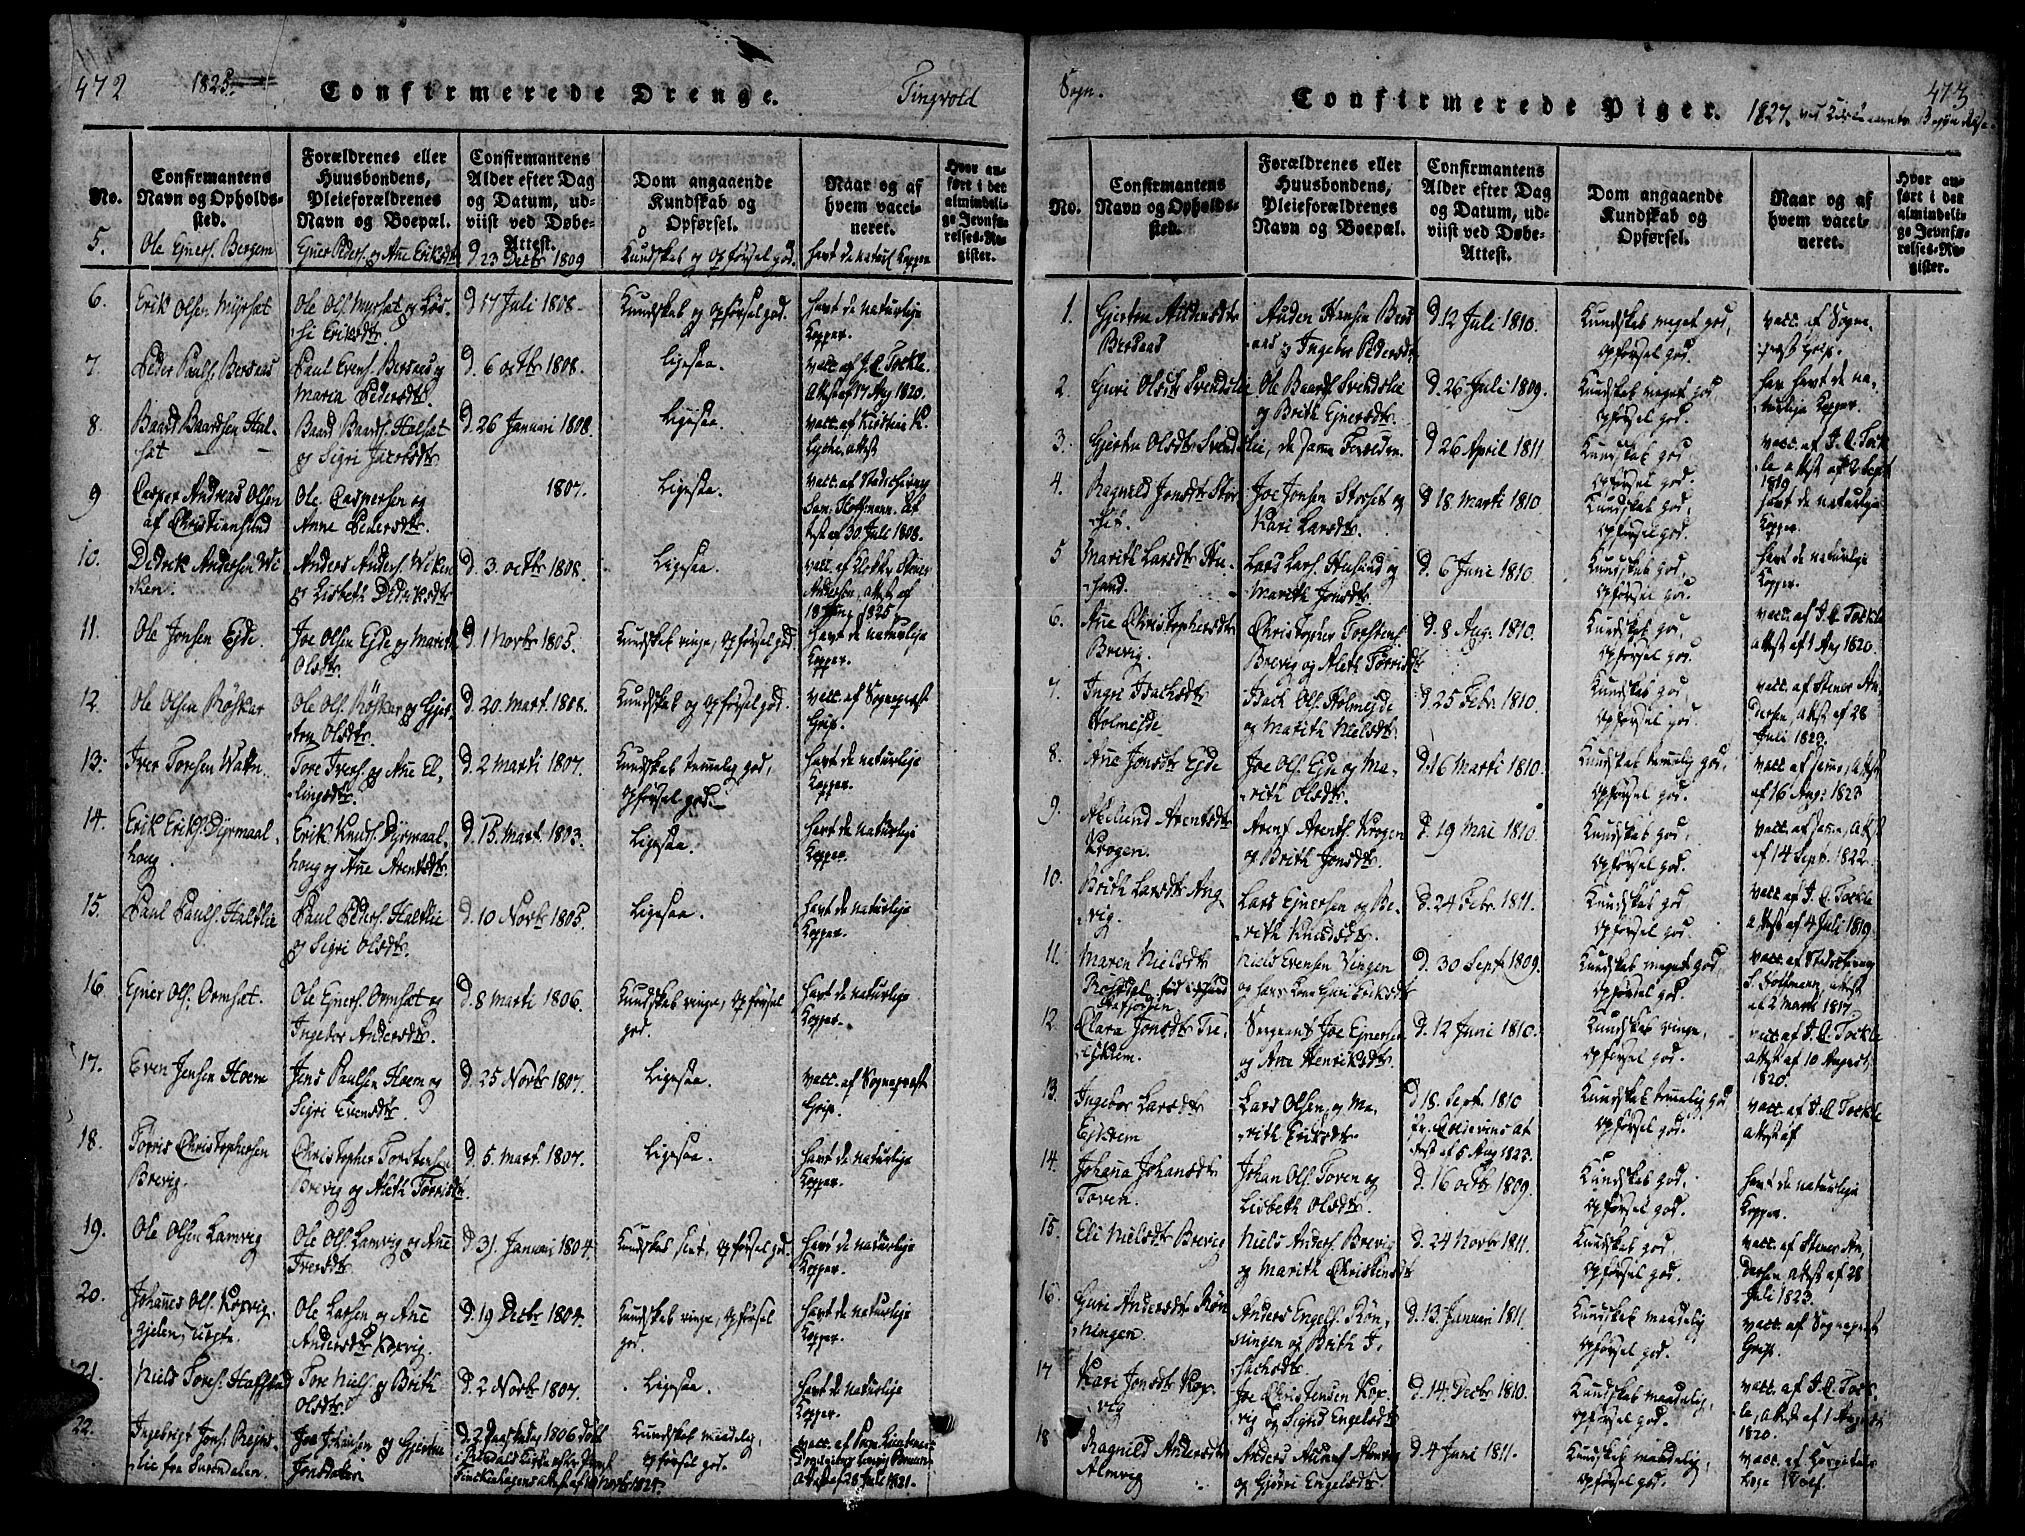 472
1825.
Confirmerede Drenge.
Tingvold
No.
Confirmantens
Navn og Opholds-
sted.
Forældrenes eller
Huusbondens,
Pleieforældrenes
Navn og Boepæl.
Confirmantens
Alder efter Dag
og Datum, ud-
viist ved Døbe-
Attest.
Dom angaaende
Kundskab og
Opførsel.
Naar og af
hvem vacci-
neret.
Hvor an-
ført i det
almindeli-
ge Jevnfø-
relses-Re-
gister.
5. Ole Ejners. Bergem
Ejner Olders. og Ane Eriksdtr
d. 23 Decbr 1809
Kundskab og opførsel god.
havt de naturl. Kopper
6. Erik Olsen Myrsæt
Ole Ols. Myrsæt og
Eriksdtr.
d. 17 Juli 1808.
Kundskab og opførsel god.
havt de naturlige
Kopper.
7. Peder Pauls. Bersaas
Paul Evens. Bersaas og
Maria Pedersdtr.
d. 6 octbr 1808.
Ligesaa.
vacc. af J. C. Tockle.
Attest af 17 Aug 1820.
8. Baard Baardsen Hal-
sæt
Baard Baards. Halsæt
og Sigri Jacobsdtr
d. 26 Januari 1808.
Ligesaa.
vacc. af Kistian K.
attest
9 Casper Andreas Olsen
af Christiansund
Ole Caspersen og
Anne Pedersdtr.
1807.
Ligesaa.
vacc. af Stadschirurg
Sam. Hoffmann. At-
test af 30 Juli 1808.
10. Didrik Andersen Wi-
ken.
Anders Anders. Wiken
og Lisbeth Didriksdtr
d. 3. octbr 1808.
Ligesaa.
vacc. af Klokker Stener
Andersen, attest af
18 1825
11. Ole Jonsen Ejde.
Joe Olsen Ejde og Marith
Olsdtr.
d. 1 Novbr 1805.
Kundskab ringe, opførsel god.
havt de naturlige
Kopper.
12. Ole Olsen Röskar
Ole Ols. Röskar og Gjer-
tru Olsdtr.
d. 20. Mart. 1808.
Kundskab og opførsel god.
vacc. af Sogneprest
Grip.
13. Iver Toresen Watn.
Tore Ivers. og Ane El-
lingsdtr.
d. 2 Marti 1807.
Kundskab temmelig god,
opførsel god.
havt de naturlige
Kopper.
14. Erik Eriks. Dyrmaal-
houg.
Erik Knuds. Dyrmaal-
houg og Ane Arentsdtr.
d. 15. Mart. 1803.
Ligesaa.
havt de naturlige
Kopper.
15. Paul Pauls. Halslie
Paul Peders. Halslie
og Sigri Olsdtr.
d. 10 Novbr 1805.
Ligesaa.
havt de naturlige
Kopper.
16 Ejner Ols. Ormsæt.
Ole Ejners. Ormsæt og
Ingebor Andersdtr.
d. 8 Marti 1806.
Kundskab ringe, opførsel
god.
havt de naturlige
Kopper.
17. Even Jensen Hoem
Jens Paulsen Hoem og
Sigri Evensdtr.
d. 25 Novbr 1807.
Ligesaa.
vacc. af Sogneprest
Grip.
18. Törris Christophersen
Brevig.
Christopher Torstensen
Brevig og Aleth Törrisdtr.
d. 5. Mart. 1807.
Ligesaa.
havt de naturlige
Kopper.
19. Ole Olsen Lamvig
Ole Ols. Lamvig og Ane
Iversdtr.
d. 31. Januari 1804.
Kundskab slet, opførsel god.
havt de naturlige
Kopper.
20. Johannes Ols. Korsvig,
Ole Larsen og Ane
Andersdtr Korsvig.
d. 19 Decbr 1804.
Kundskab ringe, opførsel
god.
havt de naturlige
Kopper.
21. Niels Tores. Hafstad
Tore Niels. og Brith
Olsdtr.
d. 2 Novbr 1807.
Ligesaa.
havt de naturlige
Kopper.
22. Ingebrigt Jons. Rejns-
lie fra Surendalen.
Joe Johansen og Gjertru
Jonsdatter
d. 2 Paaskedag 1806 døbt
af 18 Novbr 1824.
Kundskab maadelig,
opførsel god.
vacc. af
Attest af 28 Juli 1821.
Sogn.
Confirmerede Piger.
1827.
473
No.
Confirmantens
Navn og Opholds-
sted.
Forældrenes eller
Huusbondens,
Pleieforældrenes
Navn og Boepæl.
Confirmantens
Alder efter Dag
og Datum, ud-
viist ved Døbe-
Attest.
Dom angaaende
Kundskab og
Opførsel.
Naar og af
hvem vacci-
neret.
Hver an-
ført i det
almindeli-
ge Jevnfø-
relses-Re-
gister.
1. Gjertru Audensdtr
Bersaas
Auden Hansen Bers
aas og Ingebor Pedersdtr
d. 12 Juli 1810.
Kundskab meget god,
opførsel god.
vacc. af Sogne-
prest Grip.
2. Guri Olsdtr Svendslie
Ole Baards. Svendslie
og Brith Ejnersdtr.
d. 26 Juli 1809.
Kundskab meget god
opførsel god.
har havt de na-
turlige Kopper.
3. Gjertru Olsdtr Svendslie,
de samme Forældre.
d. 26 April 1811
Kundskab god.
opførsel god.
vacc. af J. C. Tock
le attest af 2 Sept
1819
4. Ragnild Jonsdtr Stor-
sæt.
Joe Jonsen Storset og
Kari Larsdtr.
d. 18 Marti 1810.
Kundskab god.
opførsel god.
havt de naturlige
Kopper.
5 Marith Larsdtr Hu-
sund.
Lars Lars. Husund og
Marith Jonsdtr
d. 6 Juni 1810.
Kundskab god,
opførsel god.
havt de naturlige
Kopper.
6. Ane Christophersdtr
Brevig.
Christopher Torstens.
Brevig og Aleth Törrisdtr
d. 8. Aug. 1810.
Kundskab god,
opførsel god.
vacc. af J. C. Tockle
attest af 1 Aug 1820.
7. Inger Isachsdtr
Holmejde
Isach Ols. Holmejde
og Marith Nielsdtr.
d. 25 Febr. 1810.
Kundskab god,
opførsel god.
vacc. af Stener An-
dersen, attest af 28
Juli 1823.
8. Ane Jonsdtr Ejde
Joe Ols. Ejde og Ma-
rith Olsdtr.
d. 16 Marti 1810.
Kundskab temmelig god,
opførsel god.
vacc. af samme, attest
af 16 Aug: 1823
9. Arentsdtr
Krogen.
Arent Arends. Krogen
og Brith Jonsdtr.
d. 19 Mai 1810.
Kundskab god,
opførsel god.
vacc. af samme, attest
af 14 Sept. 1822.
10. Brith Larsdtr Ang-
vig.
Lars Ejnersen og Be-
rith Knudsdtr.
d. 24 Febr. 1811.
Kundskab god
opførsel god.
vacc. af J. C. Tockle
attest af 4 Juli 1819.
11. Maren Nielsdtr
Niels Evensen Vingen
og hans Kone Guri Eriksdtr
d. 30 Sept. 1809.
Kundskab meget god.
opførsel god.
vacc. af Stadschirurg
S. Hoffmann, attest
af 2 Marti 1817.
12. Clara Jonsdtr Tre-
Sergeant Joe Ejnersen
og Ane Henriksdtr.
d. 12 Juni 1810.
Kundskab ringe,
opførsel god.
vacc. af J. C. Tockle
attest af 10 August
1820.
13. Ingebor Larsdtr
Lars Olsen, og Ma-
rith Eriksdtr.
d. 18. Sept. 1810
pr. at-
test af 5 Aug 1823.
Kundskab temmelig god
opførsel god.
vacc. af J. C. Tockle
attest af
14. Johana Johansdtr
Toven.
Johan Ols. Toven og
Lisbeth Olsdtr.
d. 16 octbr 1809.
Kundskab god,
opførsel god.
havt de naturlige
Kopper.
15. Eli Nielsdtr Brevig
Niels Anders. Brevig
og Marith Christensdtr
d. 24 Novbr 1811.
Kundskab god.
opførsel god.
vacc. af Stener An-
dersen attest af 28
Juli 1823.
16. Guri Andersdtr Rön-
ningen.
Anders Engels. Rön-
ningen og Brith I-
sachsdtr.
d. 13. Januari 1811.
Kundskab maadelig
opførsel god.
vacc. af Sogneprest
Grip.
17 Kari Jonsdtr Kor-
vig
Joe Christensen Kor-
vig og Sigrid Engelsdtr
d. 14. Decbr 1810.
Kundskab maadelig,
opførsel god.
vacc. af J. C. Tock-
le, attest af 1 August
1820.
18 Ragnild Andersdtr
Almvig
Anders Almvig
og Gjöri Engelsdtr.
d. 4 Juni 1811.
Kundskab maadelig,
opførsel god.
vacc. af
Wolf.